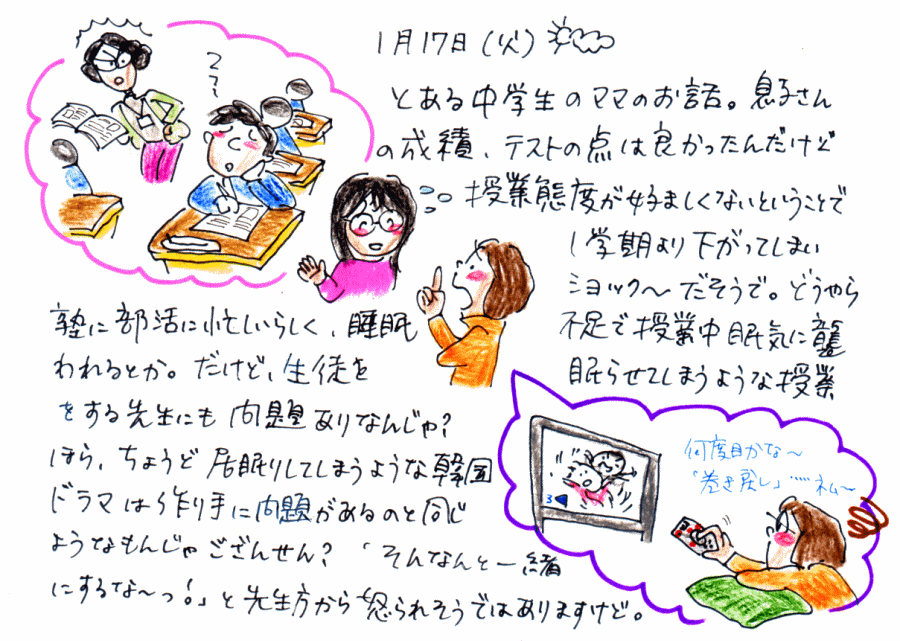 1月17日(火)
とある中学生のママのお話。息子さん
の成績、テストの点は良かったんだけど
授業態度が好ましくないということで
1学期より下がってしまい
ショック〜だそうで。どうやら
塾に部活に忙しいらしく、睡眠
不足で授業中眠気に襲
われるとか。だけど、生徒を
眠らせてしまうような授業
をする先生にも問題ありなんじゃ?
ほら、ちょうど居眠りしてしまうような韓国
ドラマは作り手に問題があるのと同じ
ようなもんじゃござんせん?「そんなんと一緒
にするな〜っ!」と先生方から怒られそうではありますけど。
何度目かな〜
「巻き戻し」……ネム〜